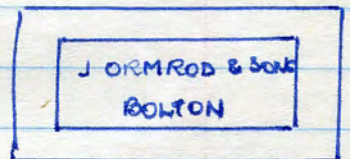 J ORMROD & SONS
BOLTON